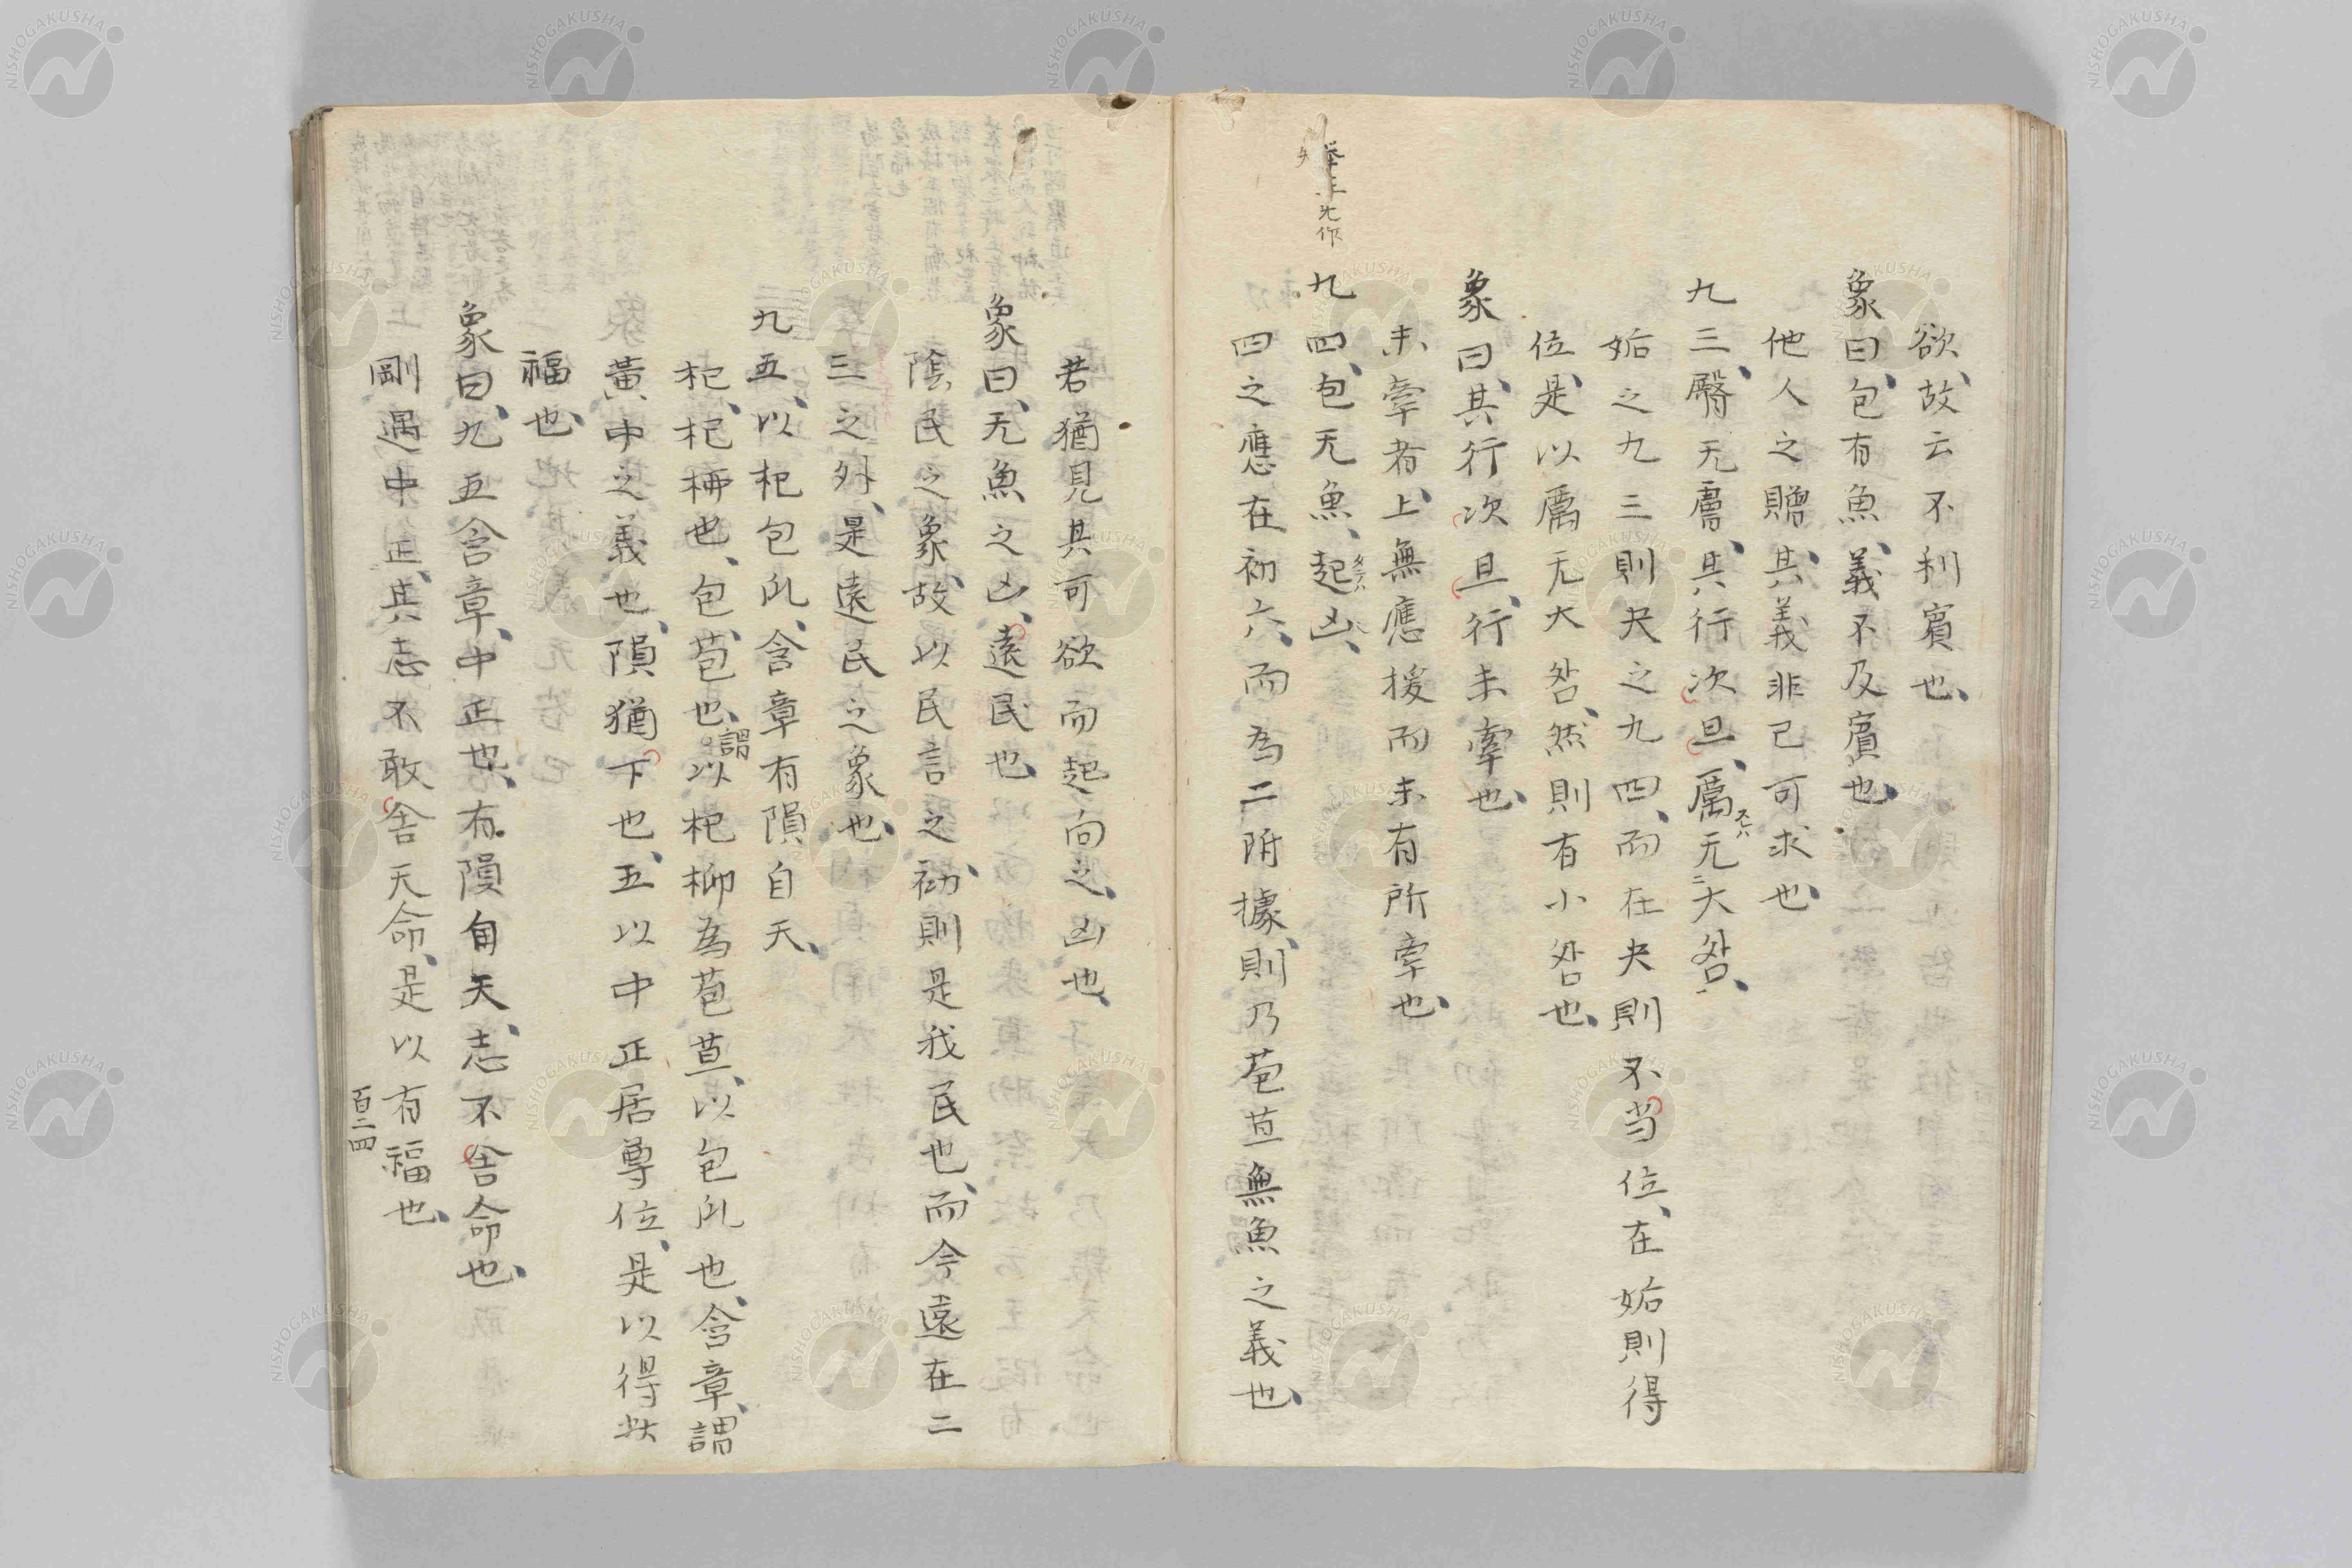 欲、故云不利賓也、
象曰、包有魚、義不及賓也、
他人之贈、其義非己可求也、
九三、臀无膚、其行次且、厲无大咎、
姤之九三則夬之九四、而在夬則不当位、在姤則得
位、是以厲无大咎、然則有小咎也、
象曰、其行次且、行未牽也、
未牽者、上無應援而未有所牽也、
九四、包无魚、起凶、
四之應在初六、而為二附據、則乃苞苴無魚之義也、
若猶見其可欲而起向之、凶也、
象曰、无魚之凶、遠民也、
陰民之象、故以民言之、初則是我民也、而今遠在二
三之外、是遠民之象也、
九五、以杞包瓜、含章、有隕自天、
杞、杞柳也、包、苞也、謂以杞柳為苞苴、以包瓜也、含章、謂
黃中之義也、隕猶下也、五以中正居尊位、是以得此
福也、
象曰、九五含章、中正也、有隕自天、志不舍命也、
剛遇中正、其志不敢舍天命、是以有福也、
百二四
NISHOGAKUSHA